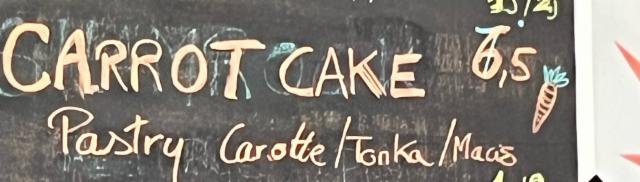 CARROT CAKE 6,5
Pastry Carotte/Tonka/Macis